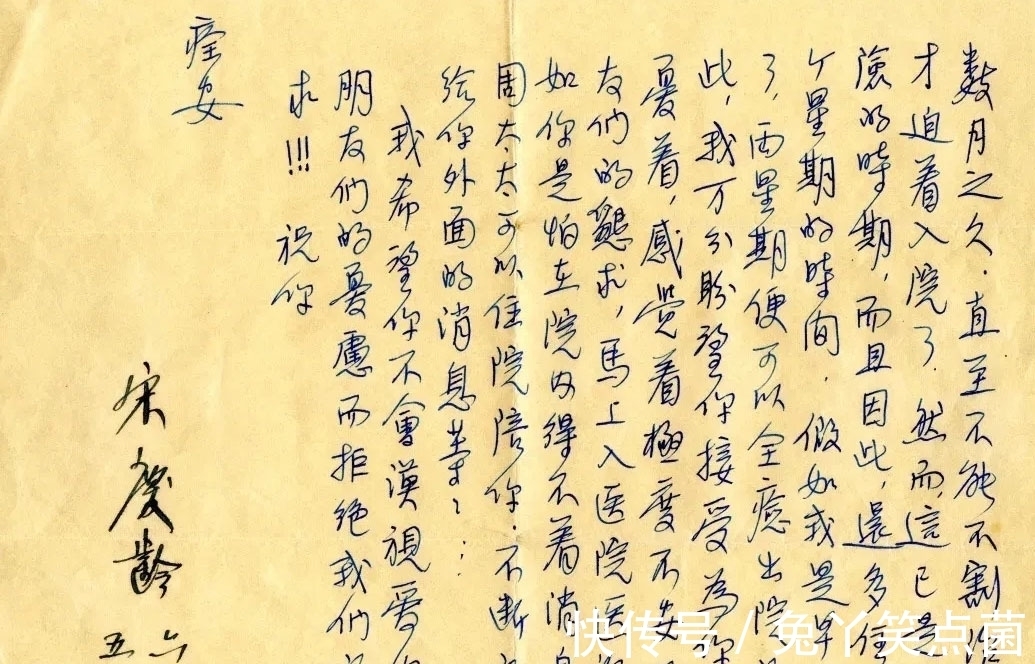 数月之久．直至不能不割治
才迫着入院了．然而，這已是
險的時期，而且因此，還多住
个星期的時间．假如我是早
了，两星期便可以全癒出院
此，我万分盼望你接受為你
憂着，感觉着極度不安
友们的懇求，馬上入医院医
如你是怕在院内得不着消息
周太太可以住院陪你．不断
给你外面的消息等等……
我希望你不會漠視愛你
朋友们的憂慮而拒绝我们
求!!! 祝你
痊安
宋慶齡
五 六
快传号 / 兔丫笑点菌